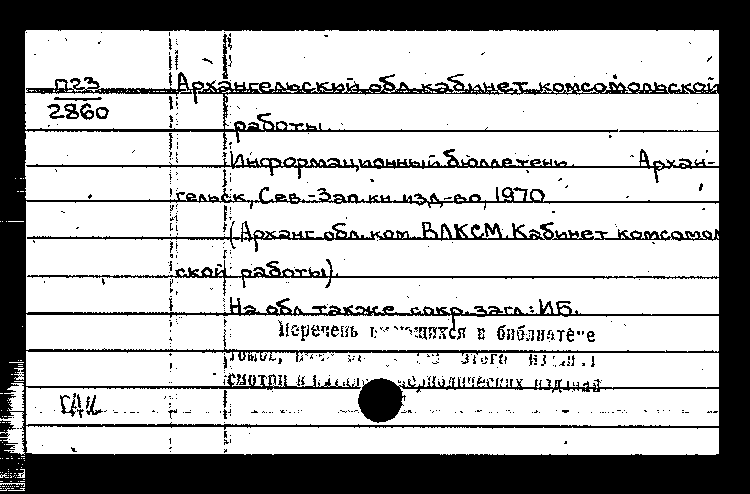 П23
2860
Архангельский обл. кабинет комсомольской
работы.
Информационный бюллетень.Архан-
гельск, Сев.-Зап. кн. изд-во, 1970
(Арханг. обл. ком. ВЛКСМ. Кабинет комсомол
ской работы).
На обл. также сокр. загл.: ИБ.
Перечень имеющихся в библиотеке
томов, этого
смотри в периодических изданий